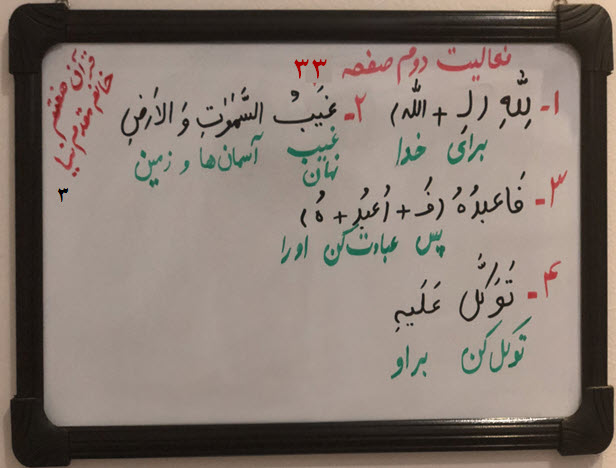 فعالیت دوم صفحه ۳۳
قرآن هفتم
خانم مقدم نیا
۳
۱- لِلّٰهِ (لِ + الله) ۲- غَیبُ السَّمٰوٰتِ وَ الاَرضِ
برای خدا غیب آسمان‌ها و زمین
نهان
۳- فَاعبُدهُ (فَ + اُعبُد + هُ)
پس عبادت کن او را
۴- تَوَکَّل عَلَیهِ
توکل کن بر او